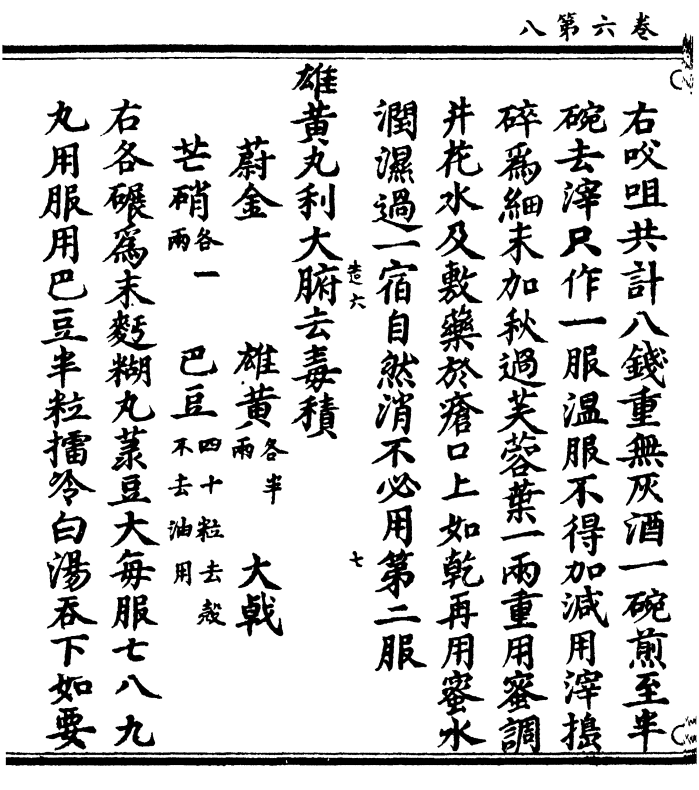 卷六第八
右㕮咀共計八錢重無灰酒一碗煎至半
碗去滓只作一服温服不得加減用滓搗
碎爲細末加秋過芙蓉葉一兩重用蜜調
井花水及敷藥於瘡口上如乾再用蜜水
潤濕過一宿自然消不必用第二服
造六 七
雄黄丸利大腑去毒積
蔚金 雄黄各半兩 大戟
芒硝各一兩 巴豆四十粒去殼不去油用
右各碾爲末麪糊丸菉豆大每服七八九
丸用服用巴豆半粒擂冷白湯吞下如要